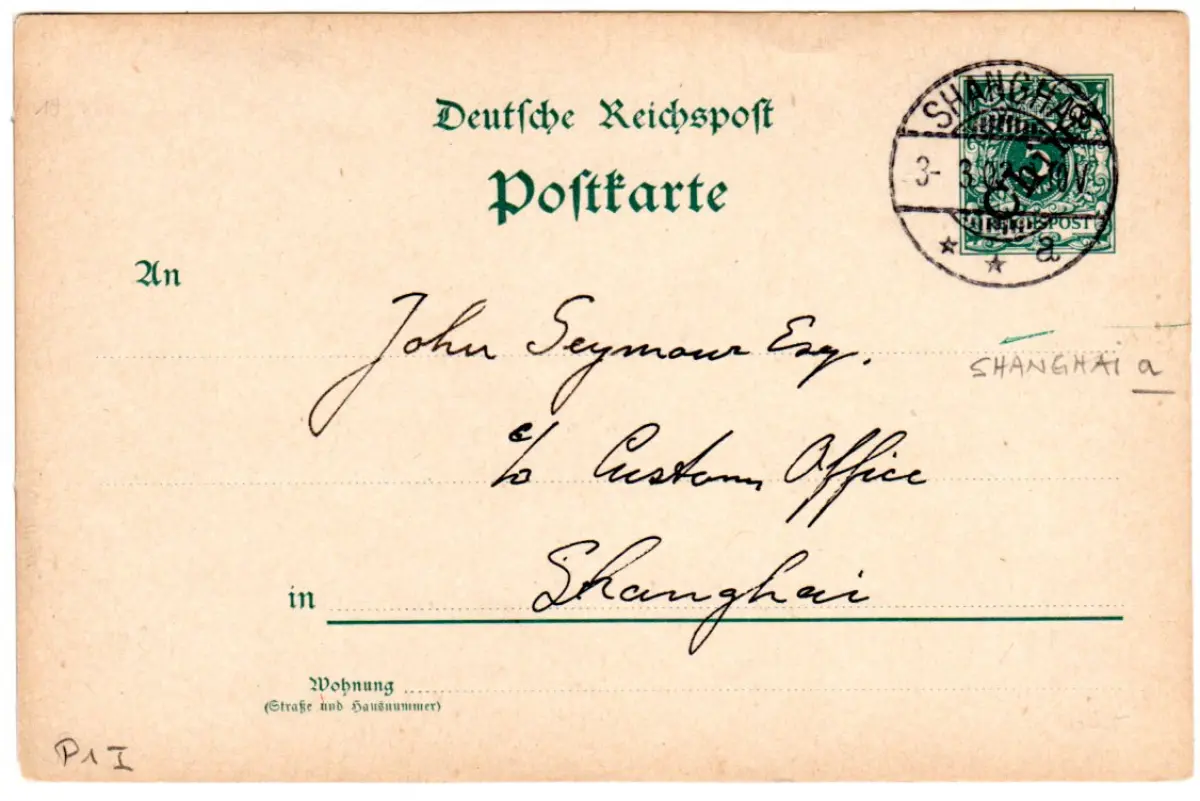 Deutsche Reichspost
Postkarte
SHANGHAI
3- 3.02 10V.
a
China
5
REICHSPOST
An
John Seymour Esq.
c/o Customs Office
Shanghai
SHANGHAI a
in
Wohnung
(Straße und Hausnummer)
P1 I